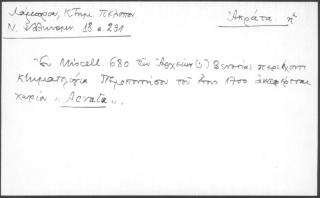 Λάμπρου, Κτημ. Πελοπον
Ν. Ἑλληνομν 18 σ. 231
Ἀκράτα. ἡ
Ἐν Miscell 680 τῶν Ἀρχείων(;) Βενετίας περιέχοντι
κτηματολόγιο Πελοποννήσου τοῦ ἔτους 1700 ἀναφέρεται
χωρίον "Acrata".